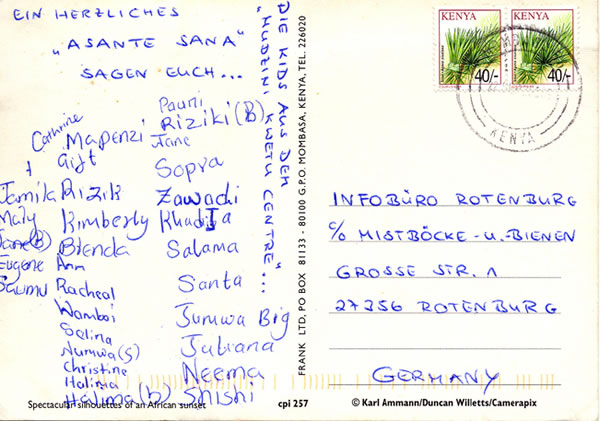 EIN HERZLICHES
„ASANTE SANA"
SAGEN EUCH...
DIE KIDS AUS DEM
„HUDEINI KWETU CENTRE"...
Cathrine
Mapenzi
Gift
Jamila
Rizik
Maly
Kimberly
Jane(B)
Brenda
Eugene
Ann
Saumu
Racheal
Wamboi
Selina
Numwa(S)
Christine
Halima
Halima(b)
Pauni
Riziki(B)
Jane
Sopra
Zawadi
Khadija
Salama
Santa
Jumwa Big
Juliana
Neema
Shishi
Spectacular silhouettes of an African sunset
cpi 257
FRANK LTD, PO BOX 81133 - 80100 G.P.O. MOMBASA, KENYA, TEL. 226020
KENYA
40/-
KENYA
40/-
KENYA
INFOBÜRO ROTENBURG
c/o MISTBÖCKE -U. BIENEN
GROSSE STR. 1
27356 ROTENBURG
GERMANY
© Karl Ammann/Duncan Willetts/Camerapix